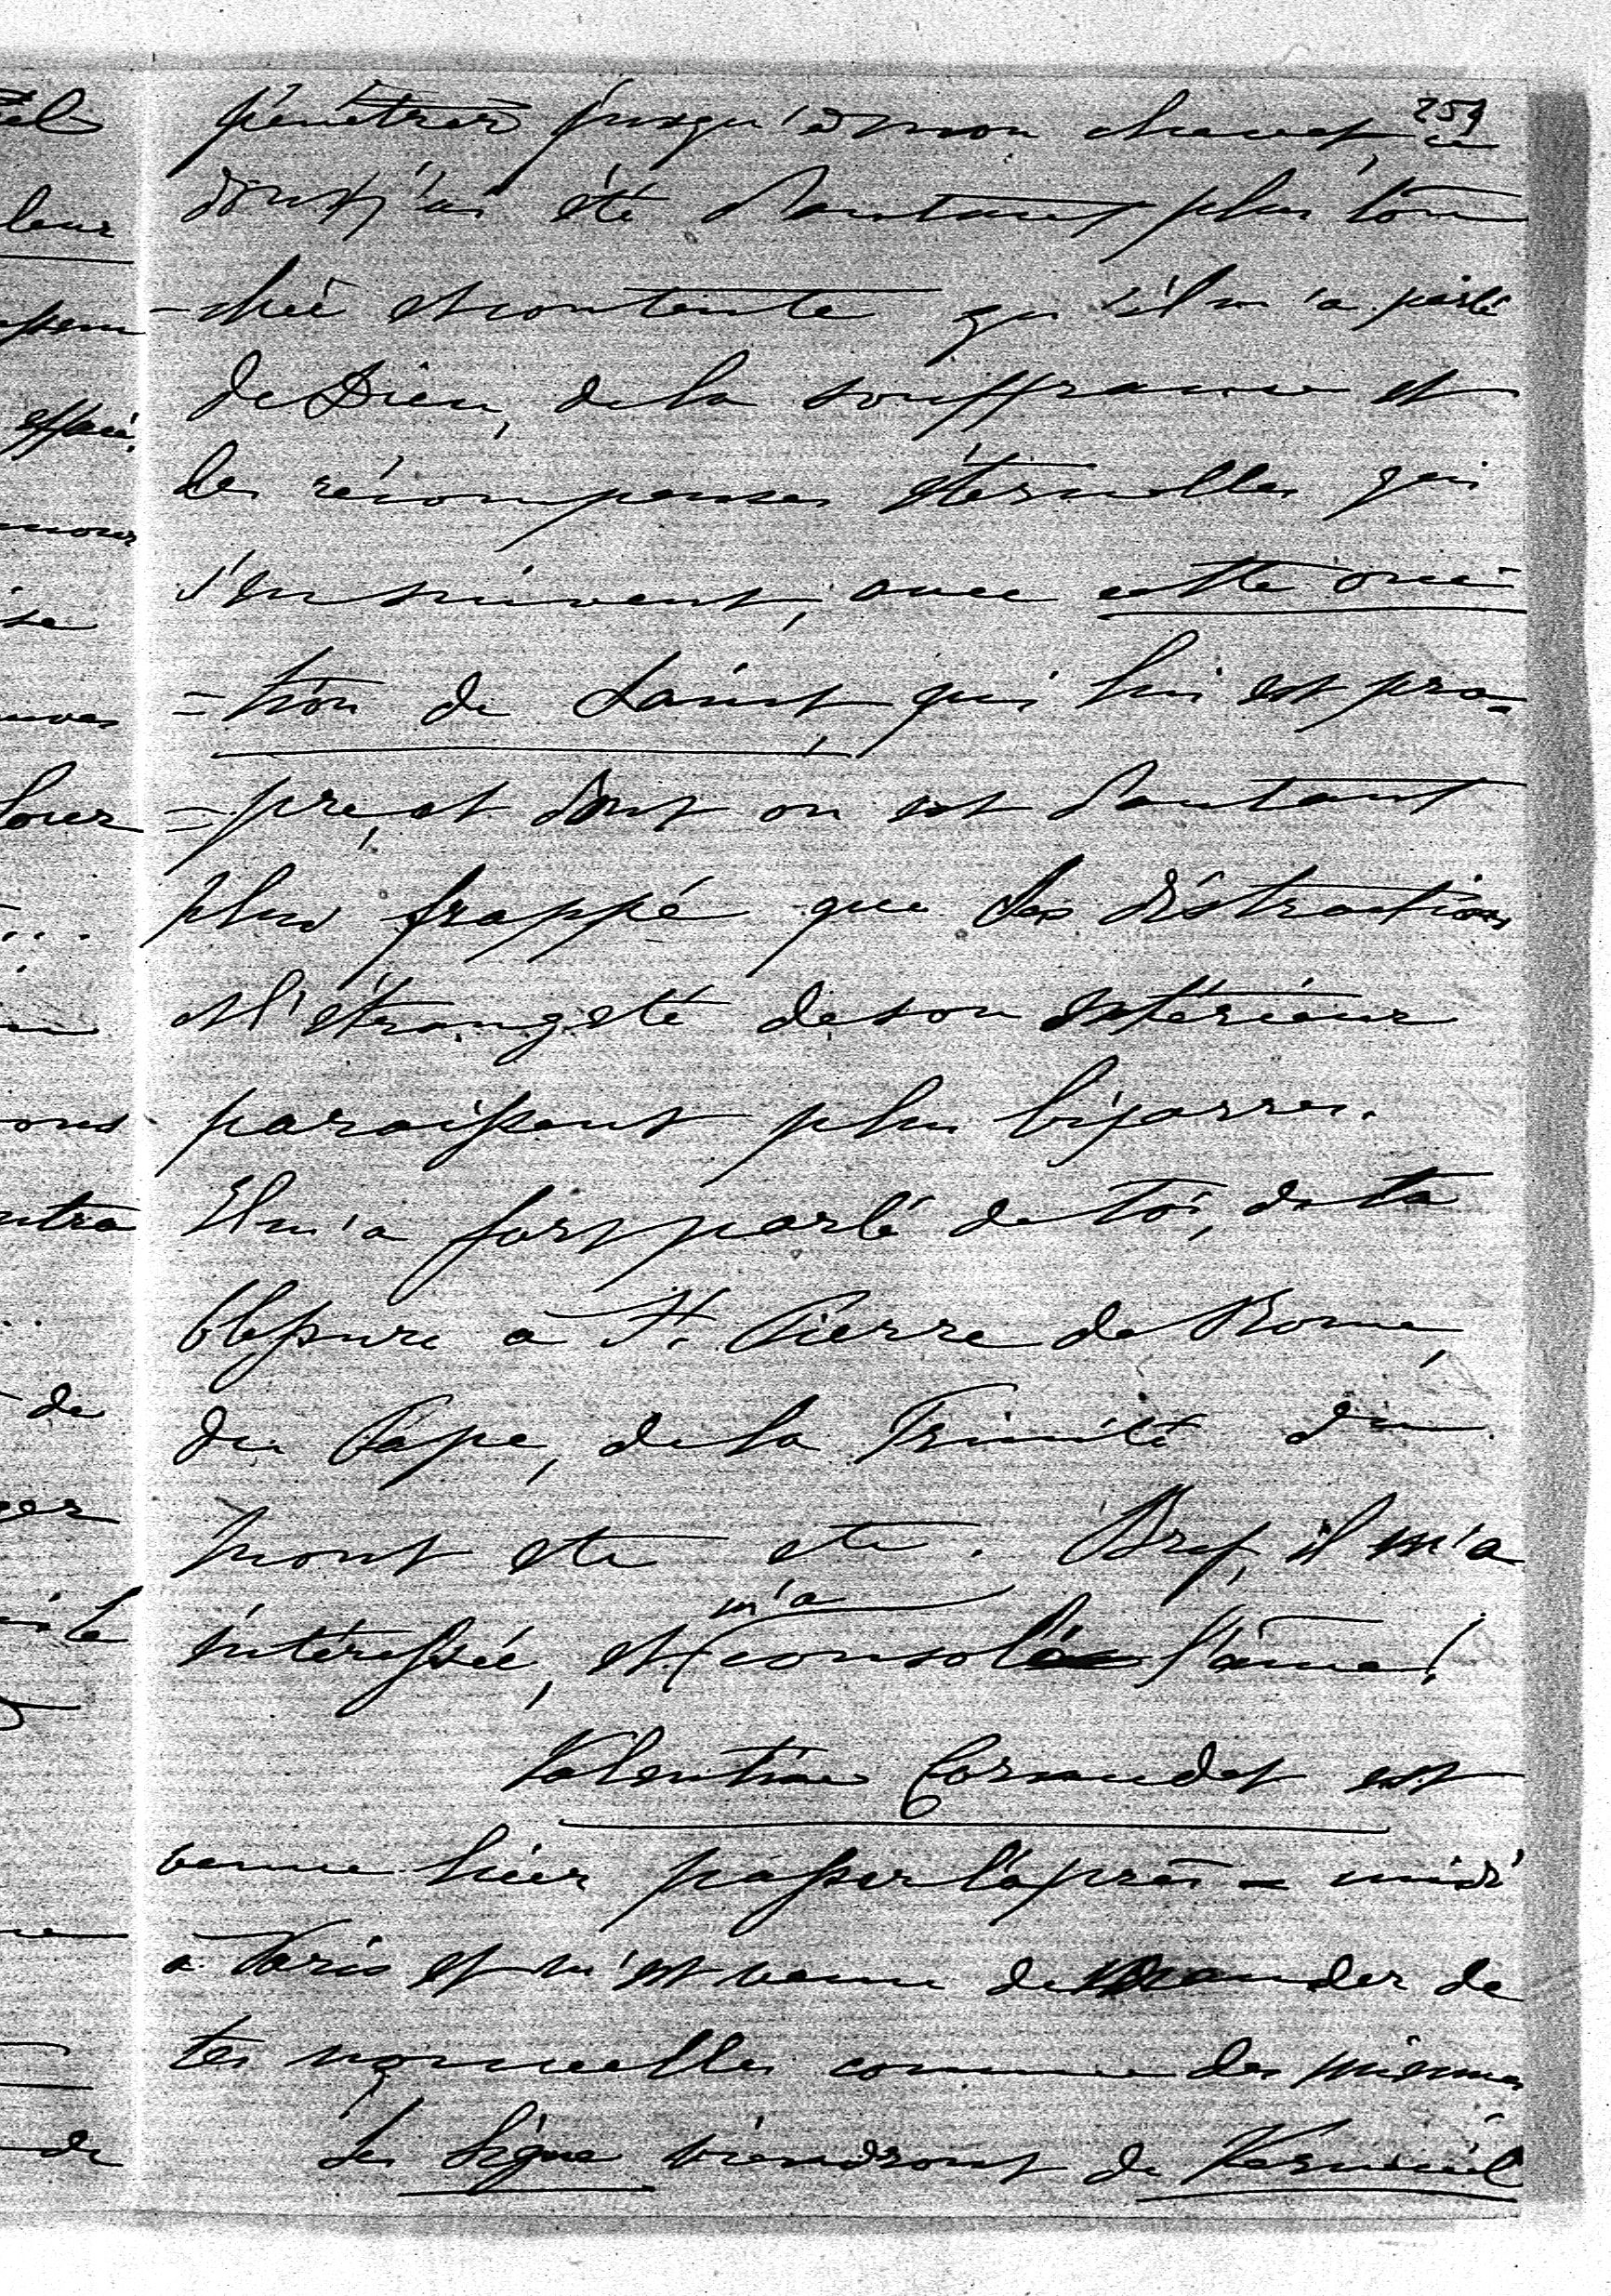 259
pénétrer jusqu'à mon chevet, ce
dont j'ai été d'autant plus tou
-chée et contente qu'il m'a parlé
de Dieu, de la souffrance et
des récompenses éternelles qui
s'en suivent, avec cette onc-
=tion de Saint, qui lui est pro-
=pre, et dont on est d'autant
plus frappé que les distractions
et l'étrangeté de son extérieur
paraissent plus bizarres.
Il m'a fort parlé de toi, de ta
blessure à St. Pierre de Rome,
du Pape, de la Trinité du
Mont etc etc. Bref, il m'a
m'a
intéressée, et consolé l'âme!
Valentine Cornudet est
venue hier passer l'après-midi
à Paris et m'est venue demander de
tes nouvelles comme des miennes
Les Ligne viendront de Verneuil